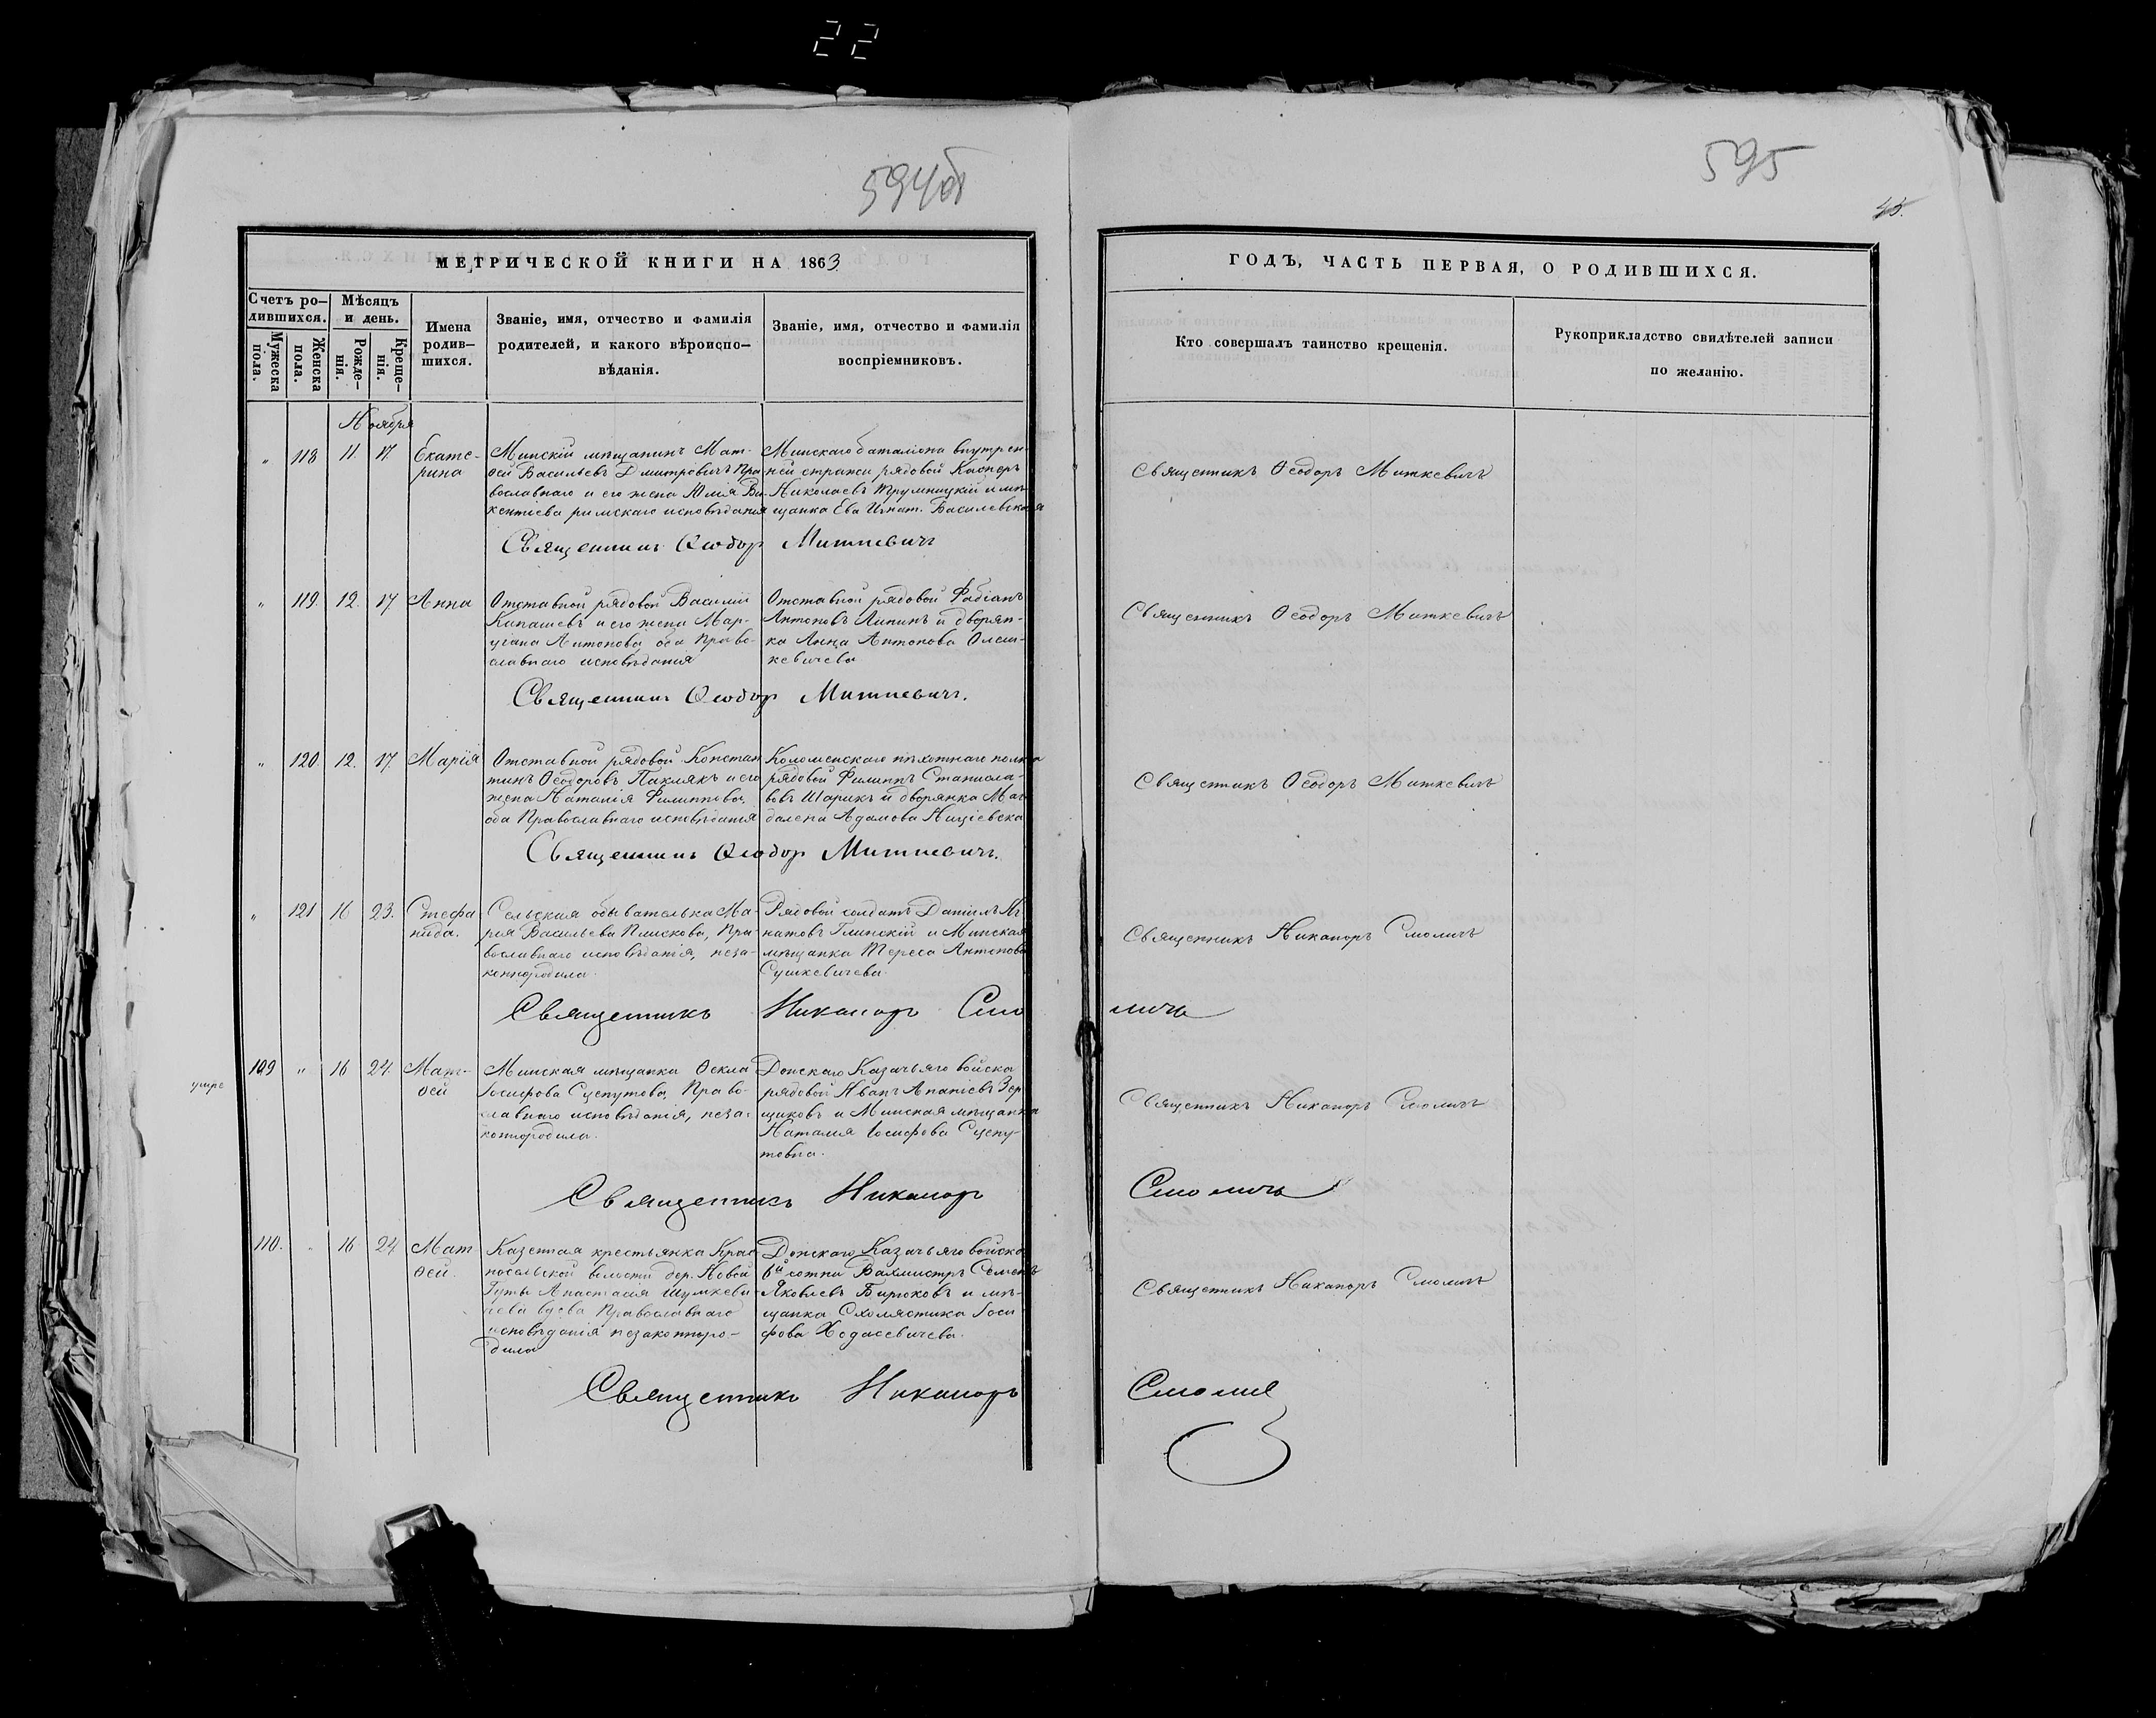 22
594об
595
45.
МЕТРИЧЕСКОЙ КНИГИ НА 1863
ГОДЪ, ЧАСТЬ ПЕРВАЯ, О РОДИВШИХСЯ.
Счетъ ро-
дившихся.
Мужеска
пола.
Женска
пола.
Мѣсяцъ
и день.
Рожде-
нія.
Креще-
нія.
Имена
родив-
шихся.
Званіе, имя, отчество и фамилія
родителей, и какого вѣроиспо-
вѣданія.
Званіе, имя, отчество и фамилія
воспріемниковъ.
Кто совершалъ таинство крещенія.
Рукоприкладство свидѣтелей записи
по желанію.
Ноября
" 118 11. 17. Екате-
рина
Минскій мѣщанинъ Мат-
ѳей Васильевъ Дмитровичъ Пра
вославнаго и его жена Юлія Ви-
кентіева римскаго исповѣданія
Минскаго баталіона внутрен-
ней стражи рядовой Касперъ
Николаевъ Трумницкій и мѣ-
щанка Ева Игнат. Василевская
Священникъ Ѳеодоръ Миткевичъ
Священникъ Ѳеодор Миткевичъ
" 119. 12. 17 Анна
Отставной рядовой Василій
Кипашевъ и его жена Мар-
ціана Антонова оба Право-
славнаго исповѣданія
Отставной рядовой Фабіанъ
Антоновъ Липинъ и дворян-
ка Анна Антонова Олеш-
кевичева
Священникъ Ѳеодоръ Миткевичъ
Священникъ Ѳеодор Миткевичъ.
" 120. 12. 17. Марія
Отставной рядовой Констан
тинъ Ѳеодоровъ Паклякъ и его
жена Наталія Филиппова,
оба Православнаго исповѣданія
Коломенскаго пѣхотнаго полка
рядовой Филиппъ Станисла-
вовъ Шарикъ и дворянка Маг
далена Адамова Націєвска
Священникъ Ѳеодоръ Миткевичъ
Священникъ Ѳеодор Миткевичъ.
" 121 16 23. Стефа
нида.
Сельская обывателька Ма-
рія Васильева Плискова, Пра
вославнаго исповѣданія, неза-
коннородила.
Рядовой солдатъ Даніилъ Иг
натовъ Глинскій и Минская
мѣщанка Тереса Антонова
Сушкевичева.
Священникъ Никаноръ Смоличъ
Священникъ Никаноръ Смо личъ
умре
109 " 16 24. Мат-
ѳей
Минская мѣщанка Ѳекла
Іосифова Сцепутова, Право-
славнаго исповѣданія, неза-
коннородила.
Донскаго Казачьяго войска
рядовой Иванъ Ананіевъ Зер
щиковъ и Минская мѣщанка
Наталія Іосифова Сцепу-
товна.
Священникъ Никаноръ Смоличъ
Священникъ Никаноръ Смоличъ
110. " 16 24 Мат
ѳей.
Казенная крестьянка Крас
носельской волости дер. Новой
Гуты Анастасія Шумкеви-
чева вдова Православнаго
исповѣданія незаконнро-
дила
Донскаго Казачьяго войска
6й сотни Вахмистръ Семенъ
Яковлевъ Бирюковъ и мѣ-
щанка Схолястика Іоси
фова Ходасевичева.
Священникъ Никаноръ Смоличъ
Священникъ Никаноръ Смолич